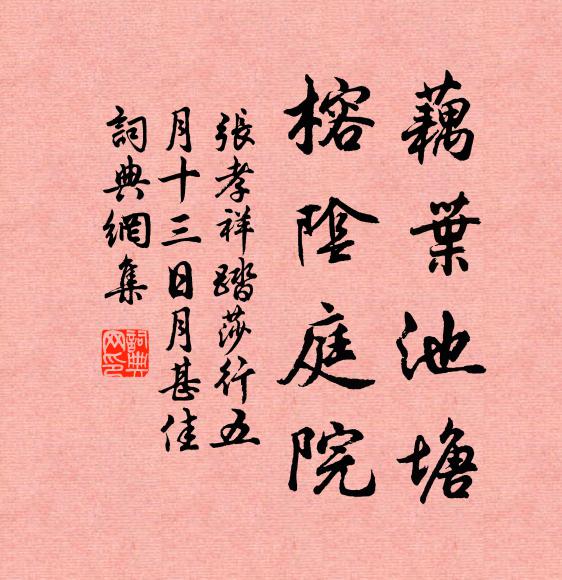 藕葉池塘
榕陰庭院
張孝祥踏莎行五
月十三日月甚佳
詞典網集
詞典网印